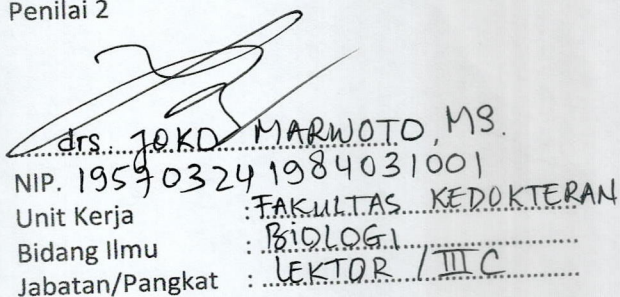 Penilai 2
drs. JOKO MARWOTO, MS.
NIP. 19570324 1984031001
Unit Kerja : FAKULTAS KEDOKTERAN
Bidang Ilmu : BIOLOGI
Jabatan/Pangkat : LEKTOR / III C